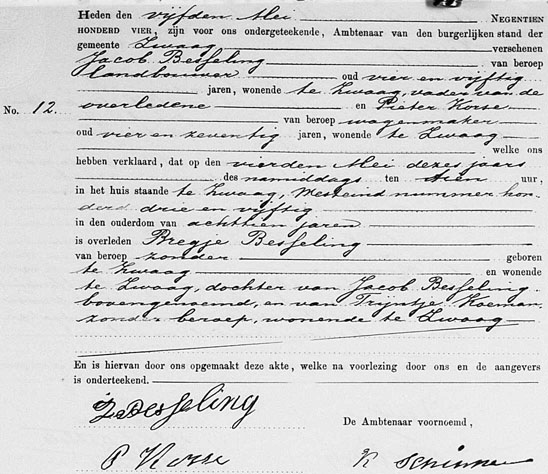 Heden den vijfden Mei NEGENTIEN
HONDERD VIER, zijn voor ons ondergeteekende, Ambtenaar van den burgerlijken stand der
gemeente Zwaag verschenen
Jacob Besseling van beroep
landbouwer oud vier en vijftig
jaren, wonende te Zwaag, vader van de
No. 12. overledene en Pieter Korse
van beroep wagenmaker
oud vier en zeventig jaren, wonende te Zwaag
welke ons
hebben verklaard, dat op den vierden Mei dezes jaars
des namiddags ten tien uur,
in het huis staande te Zwaag, Westeind nummer hon-
derd drie en vijftig
in den ouderdom van achttien jaren
is overleden Bregje Besseling
van beroep zonder geboren
te Zwaag en wonende
te Zwaag, dochter van Jacob Besseling
bovengenoemd, en van Trijntje Koeman
zonder beroep, wonende te Zwaag
En is hiervan door ons opgemaakt deze akte, welke na voorlezing door ons en de aangevers
is onderteekend.
J Besseling
De Ambtenaar voornoemd,
P Korse